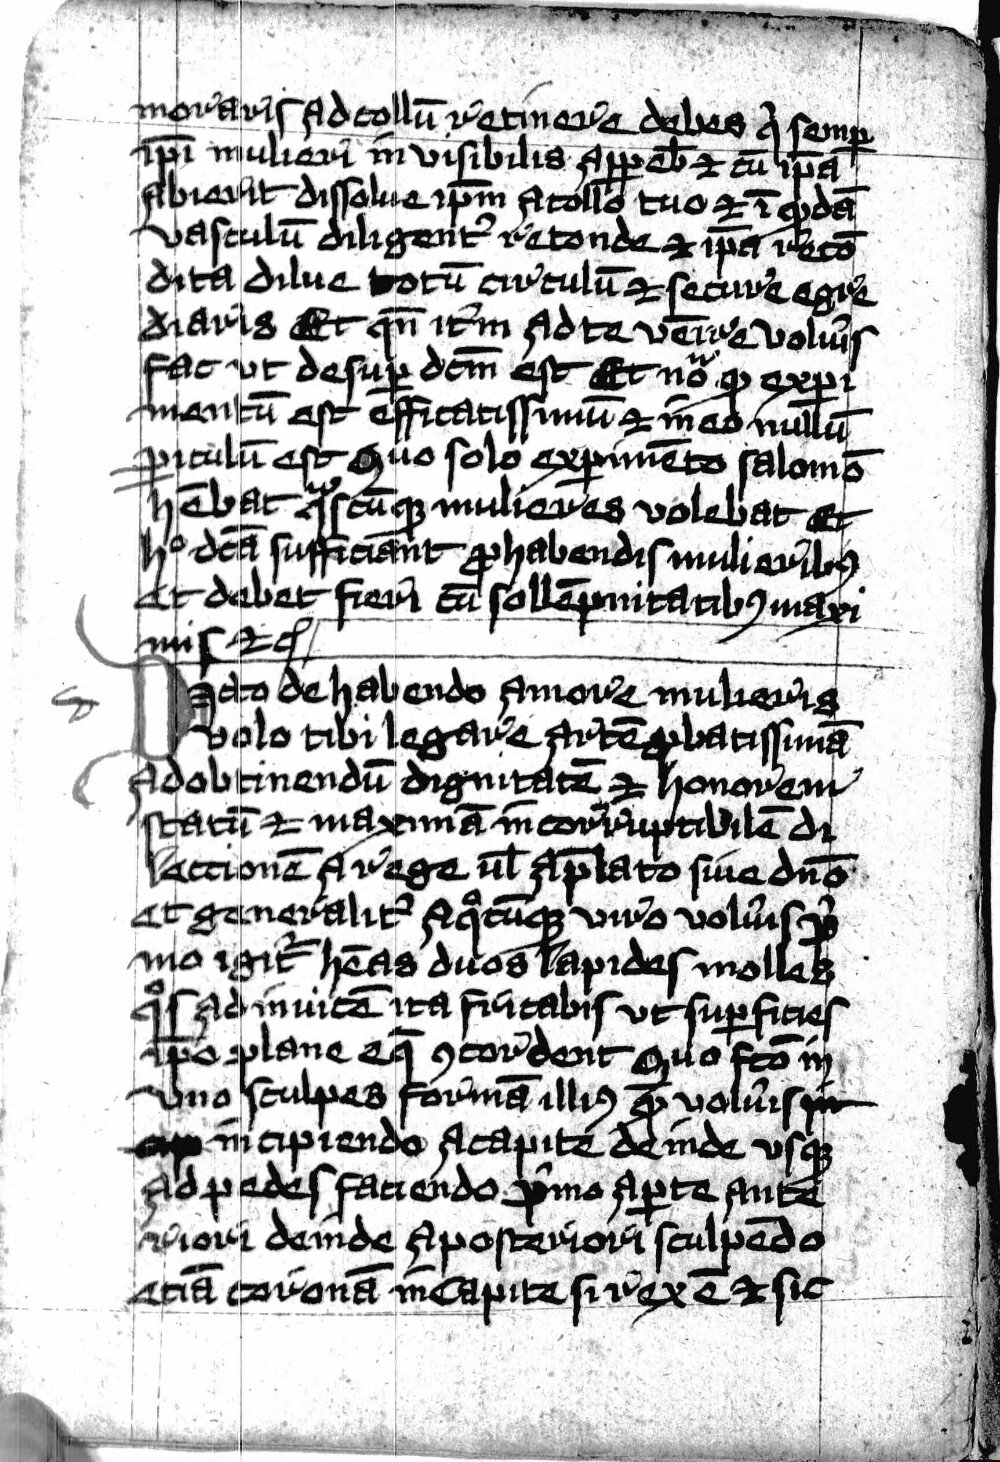 moraris ad collū retinere debes q̇ semꝑ
ip̄i mulieri in visibilis apꝑeb̄ ⁊ cū ip̄a
abierit dissolue ip̄m a collo tuo ⁊ ī qͣdā
vasculū diligent̛ reconde ⁊ ip̄a recō
dita dilue totū circulū ⁊ secure egre
diaris Et qn̄ it̛m ad te ven̄ire volūis
fac ut desuꝑ dc̄m est Et nō ꝙ exꝑi
mentū est efficacissimū ⁊ in eo nullū
ꝑiculū est Quo solo exꝑimēto salomō
hēbat qͣscūqꝫ mulieres volebat Et
hͦ dc̄a sufficiant ꝓ habendis mulieribꝰ
et debet fieri cū sollēpnitatibꝰ maxi
mis ⁊ cͥ
Dato de habendo amore mulieris
volo tibi legare artē ꝓbatissimā
ad obtinendū dignitatē ⁊ honorem
statū ⁊ maximā incorruptibilē di
lectionē a rege ul̄ a p̄lato siue dn̄o
et generalit̛ a qͦcūqꝫ viro volūis p̛
mo igit̛ hēas duos lapides molles
qͦs ad inuicē ita fricabis ut suꝑficies
ip̄o plane eq̄ ꝯcordent Quo fc̄o in
uno sculpes formā illiꝰ ꝓ volūis
incipiendo a capite deinde usqꝫ
ad pedes faciendo p̛mo a ꝑte ante
riori deinde a posteriori sculpēdo
etiā coronā in capite si rex ē ⁊ sic